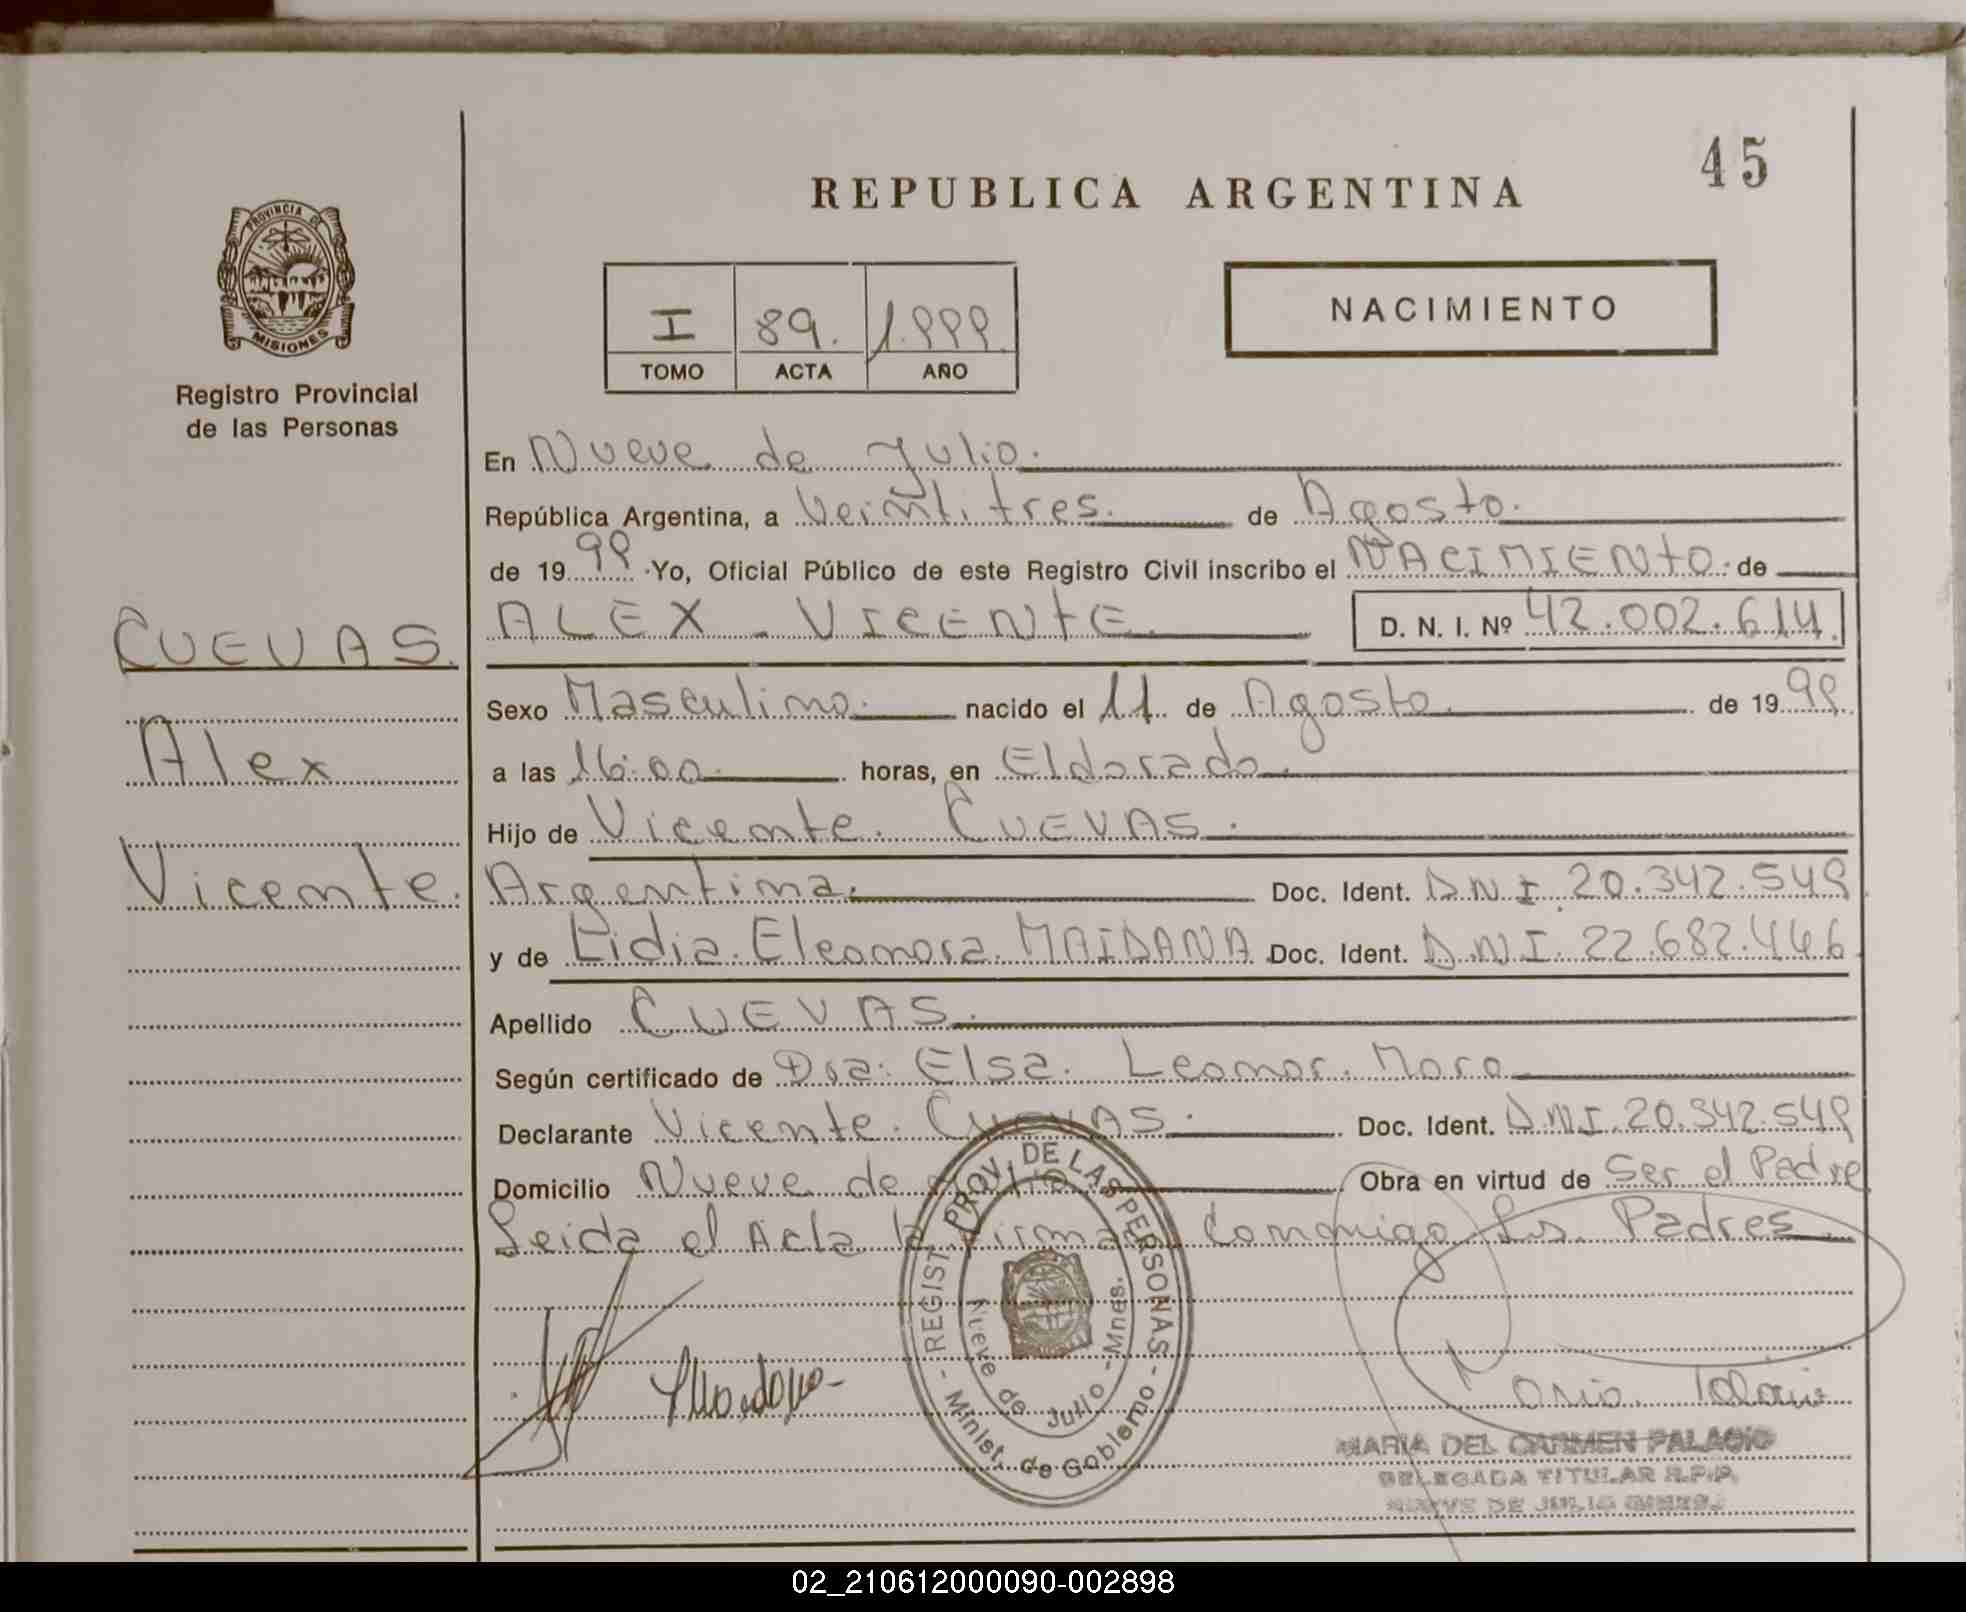 45
REPUBLICA ARGENTINA
PROVINCIA DE
MISIONES
Registro Provincial
de las Personas
I 89. 1.999.
TOMO ACTA AÑO
NACIMIENTO
En Nueve de Julio.
República Argentina, a Veintitres. de Agosto.
de 1999. Yo, Oficial Público de este Registro Civil inscribo el NACIMIENTO. de
ALEX - VICENTE. D. N. I. Nº 42.002.614.
CUEVAS.
Alex
Vicente.
Sexo Masculino. nacido el 11. de Agosto. de 1999.
a las 16:00 horas, en Eldorado.
Hijo de Vicente. CUEVAS.
Argentina. Doc. Ident. D.N.I. 20.342.549
y de Lidia. Eleonora. MAIDANA Doc. Ident. D.N.I. 22.682.446
Apellido CUEVAS.
Según certificado de Dra: Elsa. Leonor. Moro
Declarante Vicente. CUEVAS. Doc. Ident. D.N.I. 20.342.549
Domicilio Nueve de Julio Obra en virtud de Ser el Padre
Leida el Acta la firman Conmigo Ls. Padres
REGIST. PROV. DE LAS PERSONAS
- Minist. de Gobierno -
Nueve de Julio - Mnes.
MARIA DEL CARMEN PALACIO
DELEGADA TITULAR R.P.P.
NUEVE DE JULIO
02_210612000090-002898